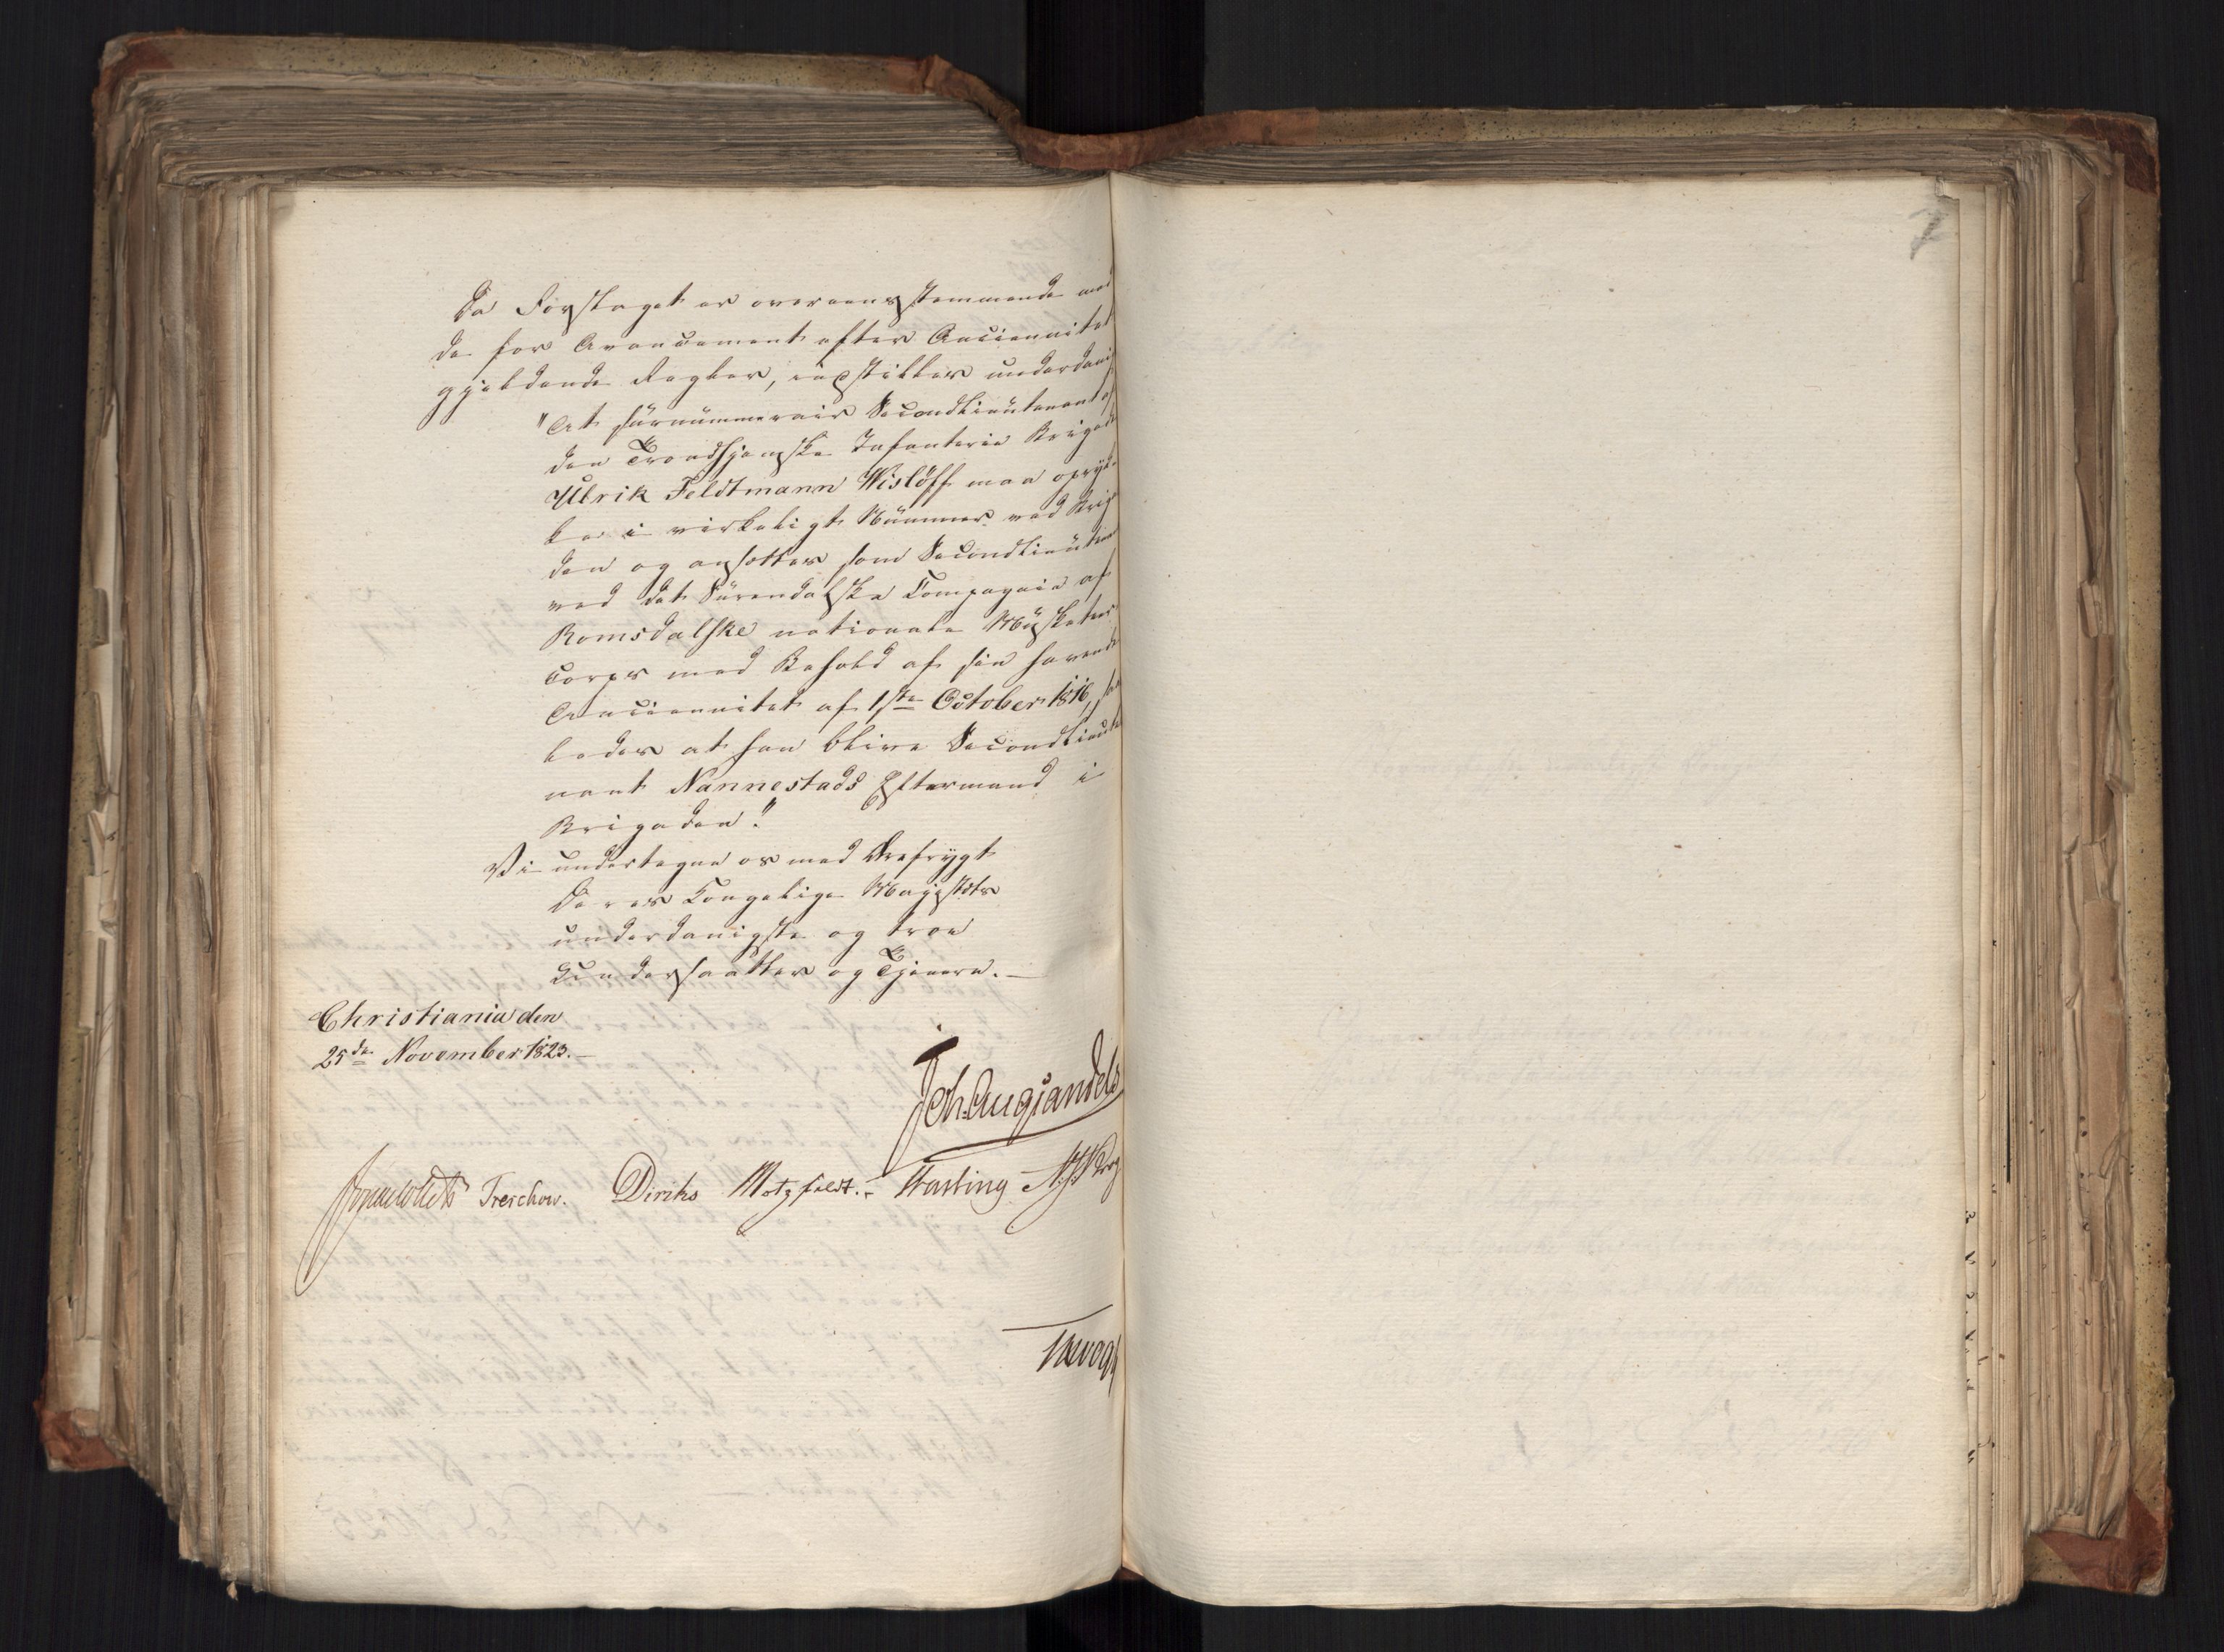 Da Forslaget er overeensstemmende med
de for Avancement efter Anciennitet
gjeldende Regler, indstilles underdanigst
"At surnummerair Secondlieutenant af
den Trondhjemske Infanterie Brigade
Ulrik Feldtmann Wislöff maa opryk-
ke i virkeligt Nummer ved Briga
den og ansættes som Secondlieutenant
ved det Surendalske Compagnie af
Romsdalske nationale Musketeer
Corps med Behold af sin havende
Anciennitet af 1ste October 1816, saa
ledes at han blive Secondlieute
nant Nannestads Eftermand i
Brigaden."
Vi undertegne os med Ærefrygt
Deres Kongelige Majestæts
underdanigste og troe
Undersaatter og Tjenere.
Christiania den
25de November 1823.
Joh. Aug Sandels
Treschow. Diriks Motzfeldt. Fasting